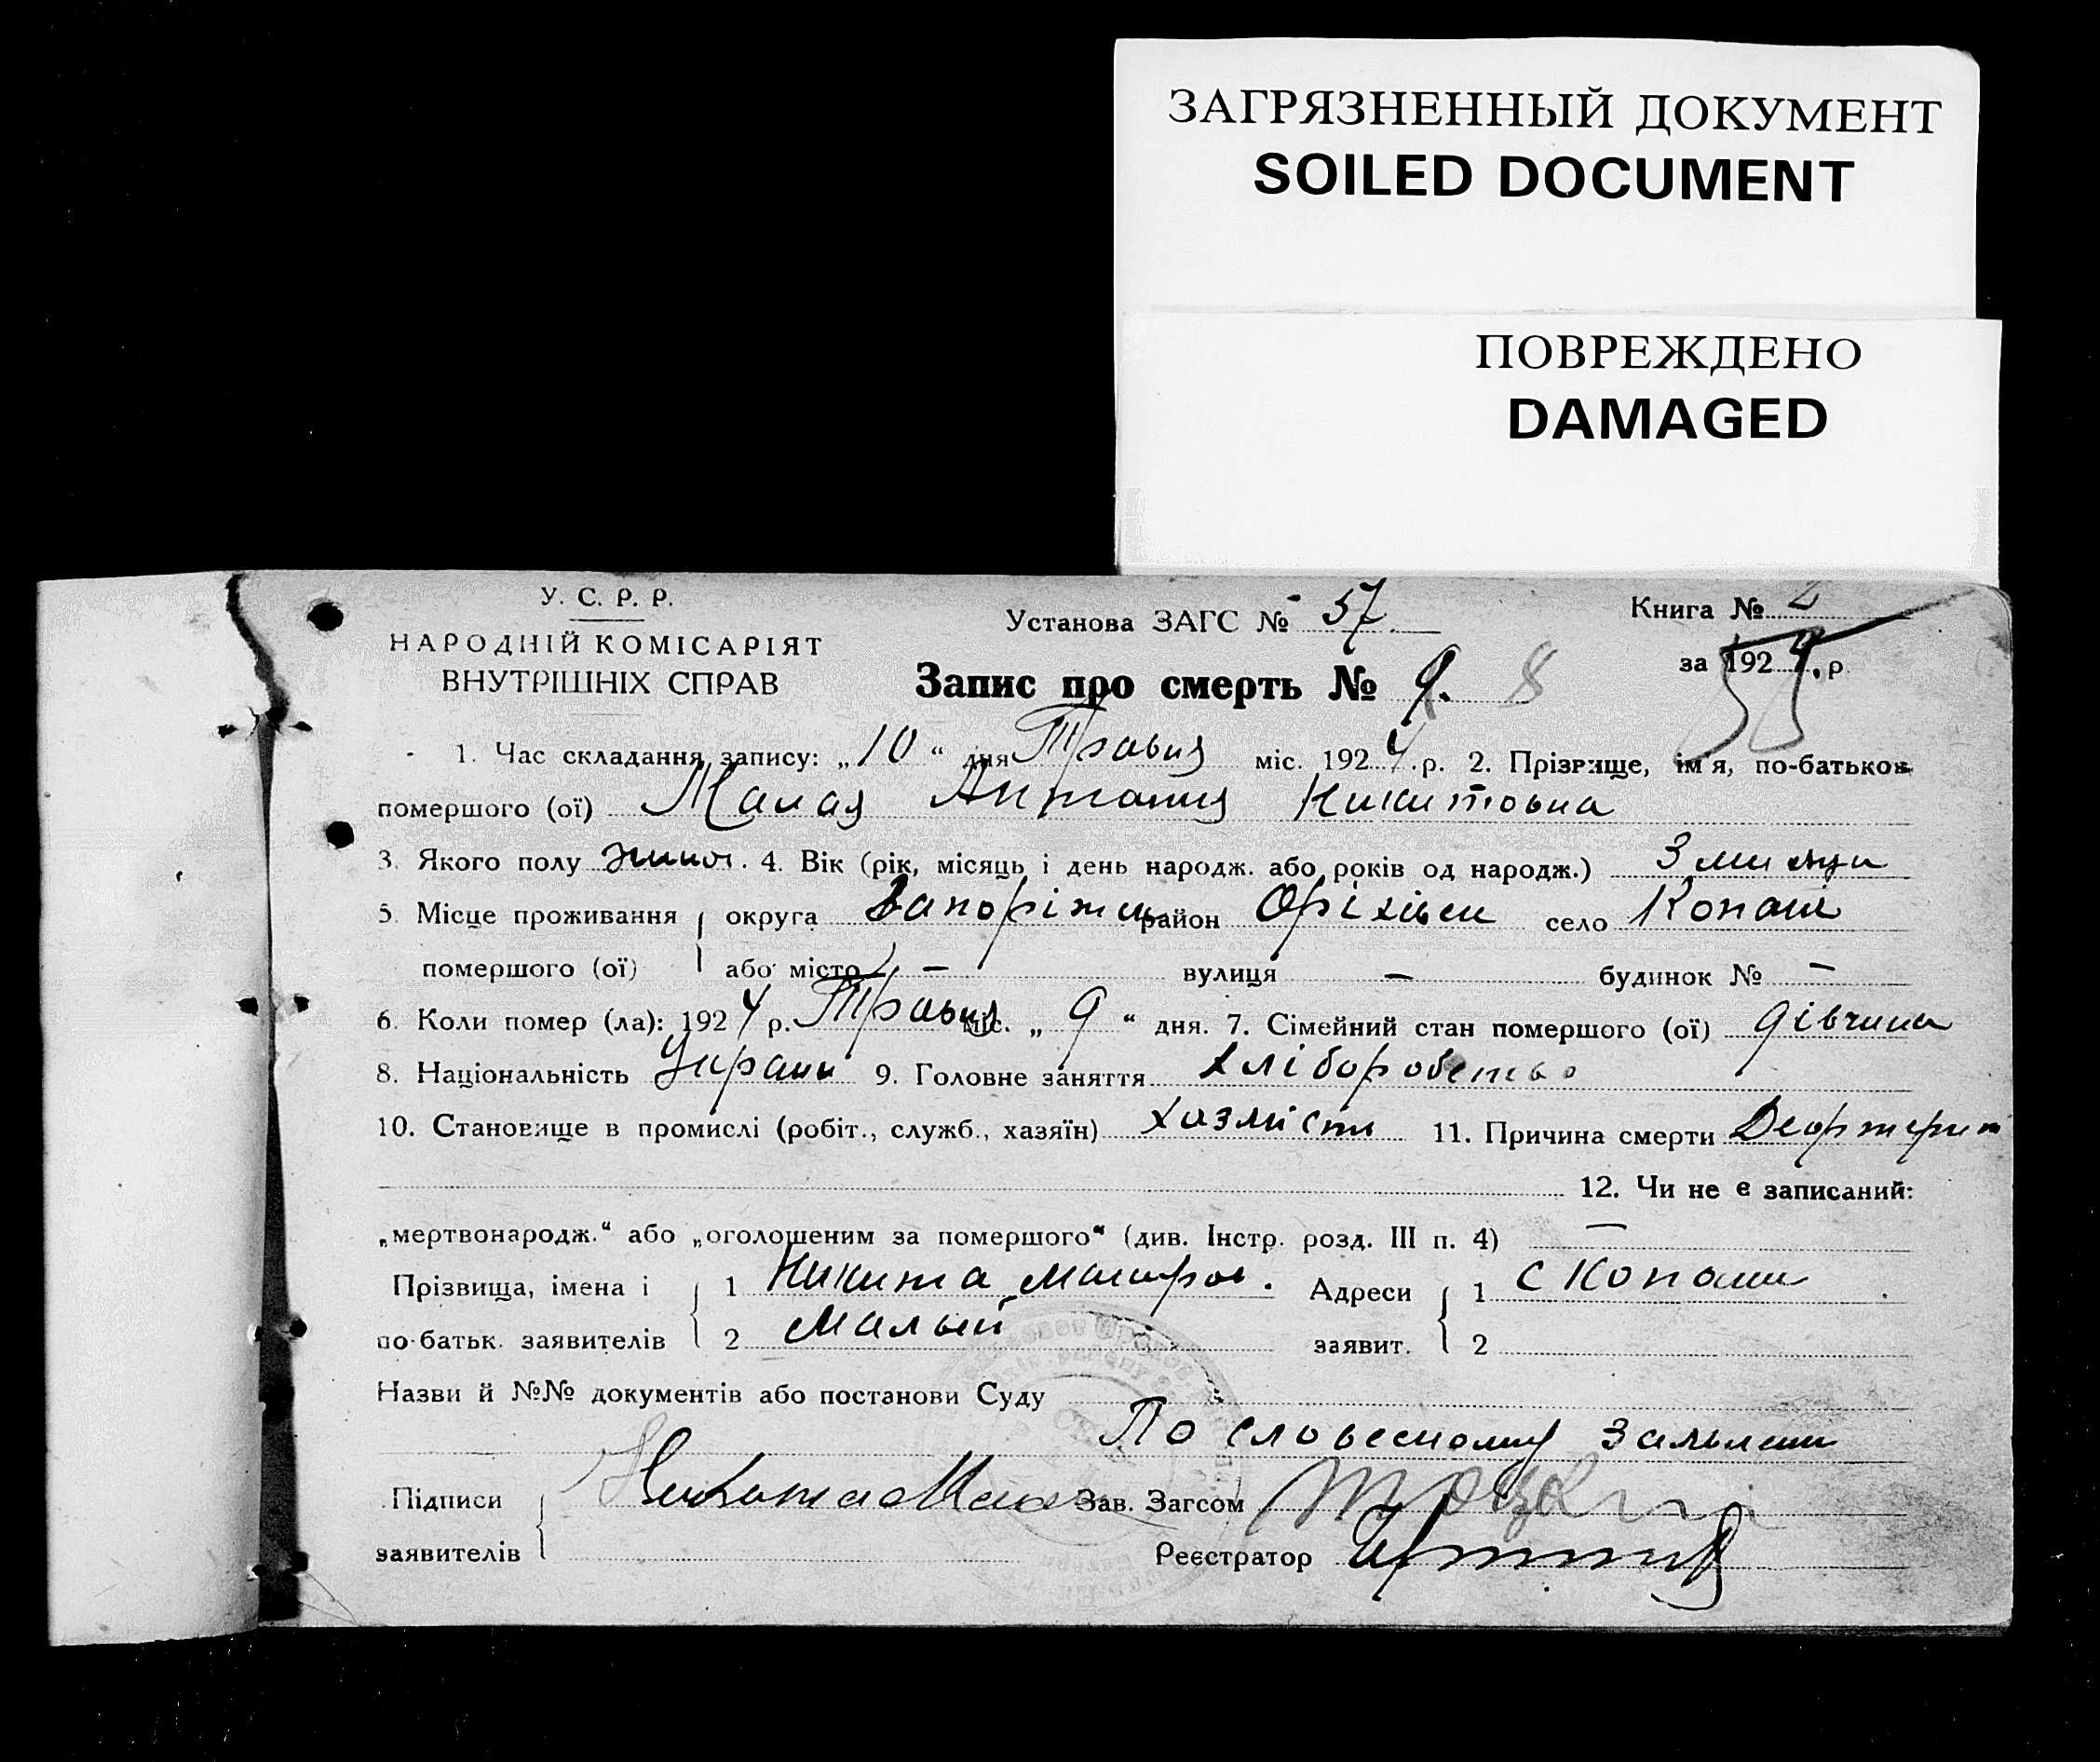 ЗАГРЯЗНЕННЫЙ ДОКУМЕНТ
SOILED DOCUMENT
ПОВРЕЖДЕНО
DAMAGED
У. С. Р. Р.
НАРОДНІЙ КОМІСАРІЯТ
ВНУТРІШНІХ СПРАВ
Установа ЗАГС № 57
Книга № 2
за 1924 р.
Запис про смерть № 9. 8
1. Час складання запису: „10“ дня Травня міс. 1924 р. 2. Прізвище, ім'я, по-батьков
помершого (ої) Малая Антония Никитовна
3. Якого полу жиноч. 4. Вік (рік, місяць і день народж. або років од народж.) 3 мисяци
5. Місце проживання округа Запоріжськ район Оріхівськ село Копані
помершого (ої) або місто — вулиця — будинок № —
6. Коли помер (ла): 1924 р. Травня міс. „ 9 “ дня. 7. Сімейний стан помершого (ої) дівчина
8. Національність Украин 9. Головне заняття хліборобство
10. Становище в промислі (робіт., служб., хазяїн) 11. Причина смерти
12. Чи не є записаний:
„мертвонародж.“ або „оголошеним за помершого“ (див. Інстр. розд. III п. 4) —
Прізвища, імена і 1 Никита Митроф. Адреси 1 с Копани
по-батьк. заявителів 2 Малый заявит. 2
Назви й №№ документів або постанови Суду
По словесному
Підписи Никита Зав. Загсом
заявителів Реєстратор